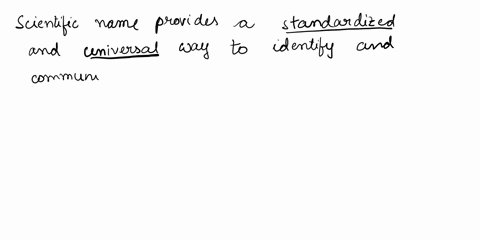 Scientific name provides a standardized
and universal way to identify and
commun